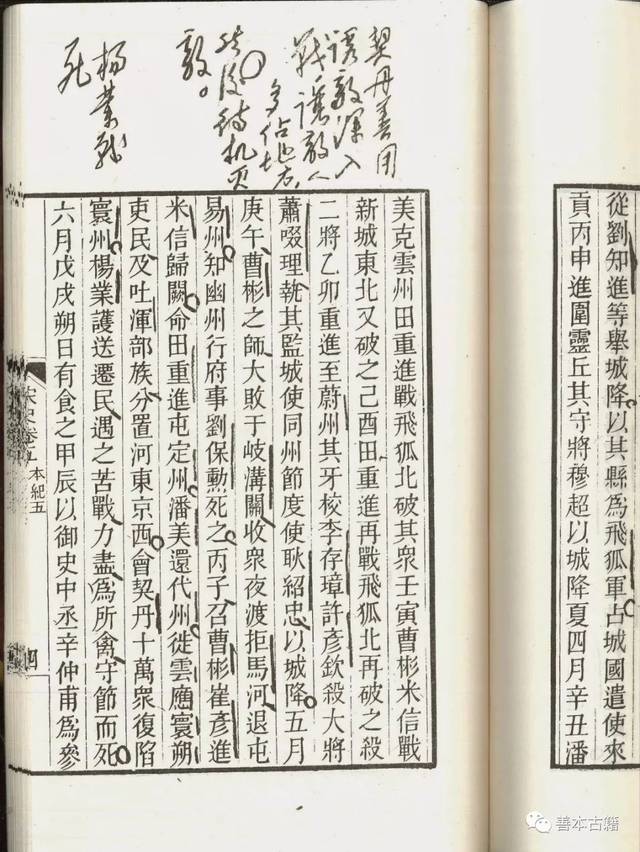 從劉知進等舉城降以其縣爲飛狐軍占城國遣使來
貢丙申進圍靈丘其守將穆超以城降夏四月辛丑潘
契丹善用
誘敵深入
戰,讓敵人
多佔地方,
然后待机灭
敵。
楊業戰
死
美克雲州田重進戰飛狐北破其衆壬寅曹彬米信戰
新城東北又破之己酉田重進再戰飛狐北再破之殺
二將乙卯重進至蔚州其牙校李存璋許彥欽殺大將
蕭啜理執其監城使同州節度使耿紹忠以城降五月
庚午曹彬之師大敗于岐溝關收衆夜渡拒馬河退屯
易州知幽州行府事劉保勳死之丙子召曹彬崔彥進
米信歸闕命田重進屯定州潘美還代州徙雲應寰朔
吏民及吐渾部族分置河東京西會契丹十萬衆復陷
寰州楊業護送遷民遇之苦戰力盡爲所禽守節而死
六月戊戌朔日有食之甲辰以御史中丞辛仲甫爲參
宋史卷五 本紀五
四
善本古籍